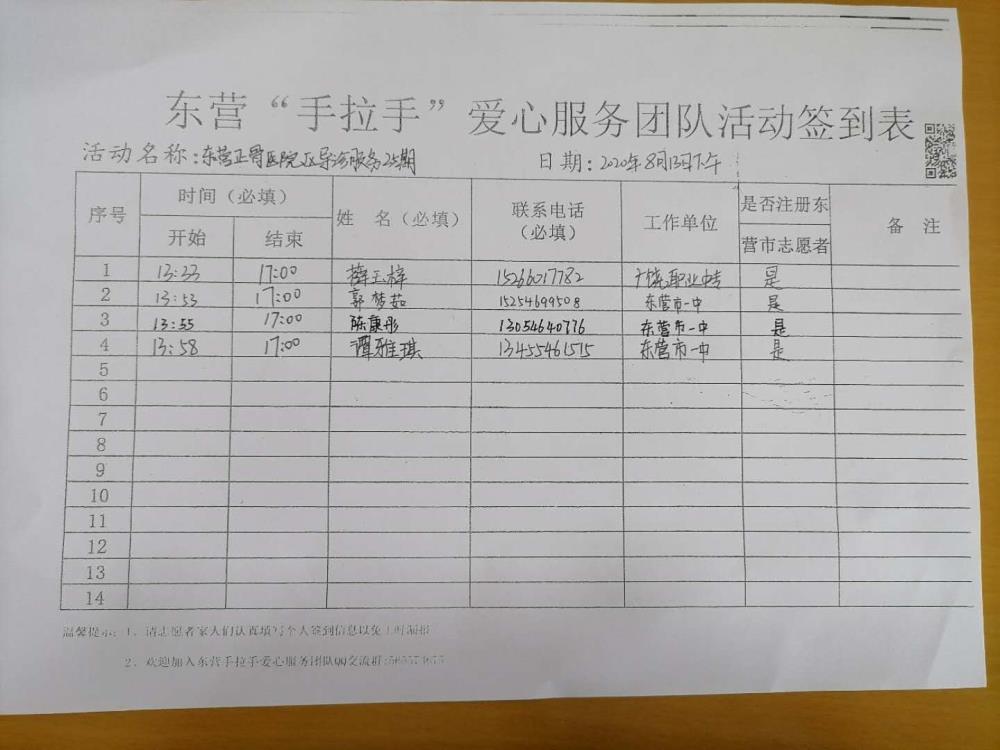 东营“手拉手”爱心服务团队活动签到表
活动名称:东营正骨医院 导诊服务25期 日期:2020年8月13日下午
序号 时间（必填） 姓 名（必填） 联系电话（必填） 工作单位 是否注册东营市志愿者 备 注
开始 结束
1 13:23 17:00 薛玉梓 15266017782 广饶职业中专 是
2 13:53 17:00 郭梦茹 15254699508 东营市一中 是
3 13:55 17:00 陈康彤 13054640776 东营市一中 是
4 13:58 17:00 谭雅琪 13455461515 东营市一中 是
5
6
7
8
9
10
11
12
13
14
温馨提示: 1、请志愿者家人们认真填写个人签到信息以免工时漏报
2、欢迎加入东营手拉手爱心服务团队QQ交流群: